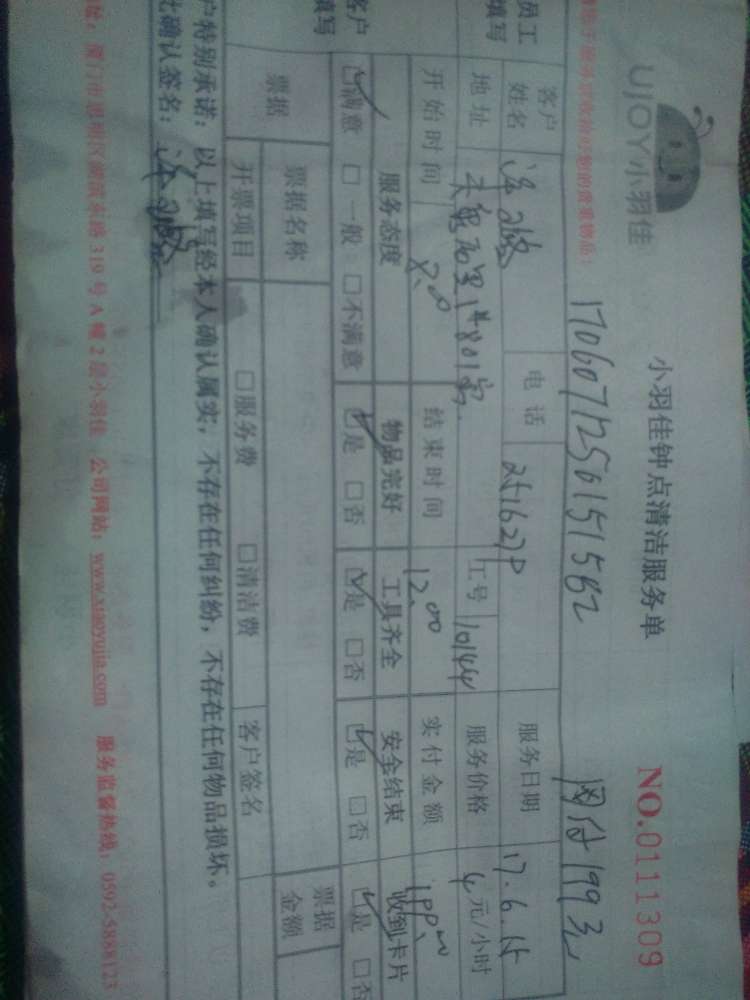 UJOY小羽佳
小羽佳钟点清洁服务单
NO.0111309
贵重物品:
1706071250151582
网付199元
员工
填写
客户
姓名
电话
服务日期
17.6.15
地址
工号
10144
服务价格
元/小时
开始时间
8.00
结束时间
12.00
实付金额
客户
填写
服务态度
物品完好
工具齐全
安全结束
收到卡片
☑满意 □一般 □不满意
☑是 □否
☑是 □否
☑是 □否
☑是 □否
票据
票据名称
票据
金额
开票项目
□服务费
□清洁费
客户签名
户特别承诺: 以上填写经本人确认属实, 不存在任何纠纷, 不存在任何物品损坏。
确认签名:
址: 厦门市思明区湖滨东路319号A幢2层小羽佳 公司网站: www.xiaoyujia.com 服务监督热线: 0592-5888123